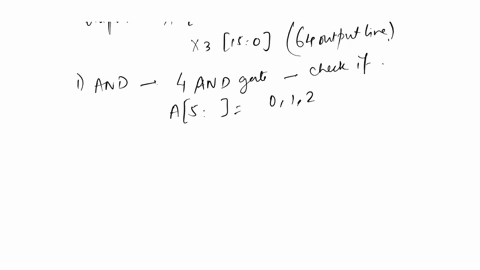 X3 [15:0] (64 output line)
1) AND → 4 AND gate – check if.
A[5: ] = 0, 1, 2